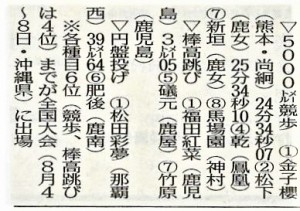 ▽5000㍍競歩　①金子櫻
（熊本・尚絅）24分34秒07②松下
（鹿女）25分34秒10④乾（鳳凰）
⑦新垣（鹿女）⑧馬場園（神村）
▽棒高跳び　①福田紅菜（鹿児
島）3㍍05⑤磯元（鹿屋）⑦竹原
（鹿児島）
▽円盤投げ　①松田彩夢（那覇
西）39㍍64⑥肥後（鹿南）
※各種目6位（競歩、棒高跳び
は4位）までが全国大会（8月4
～8日・沖縄県）に出場